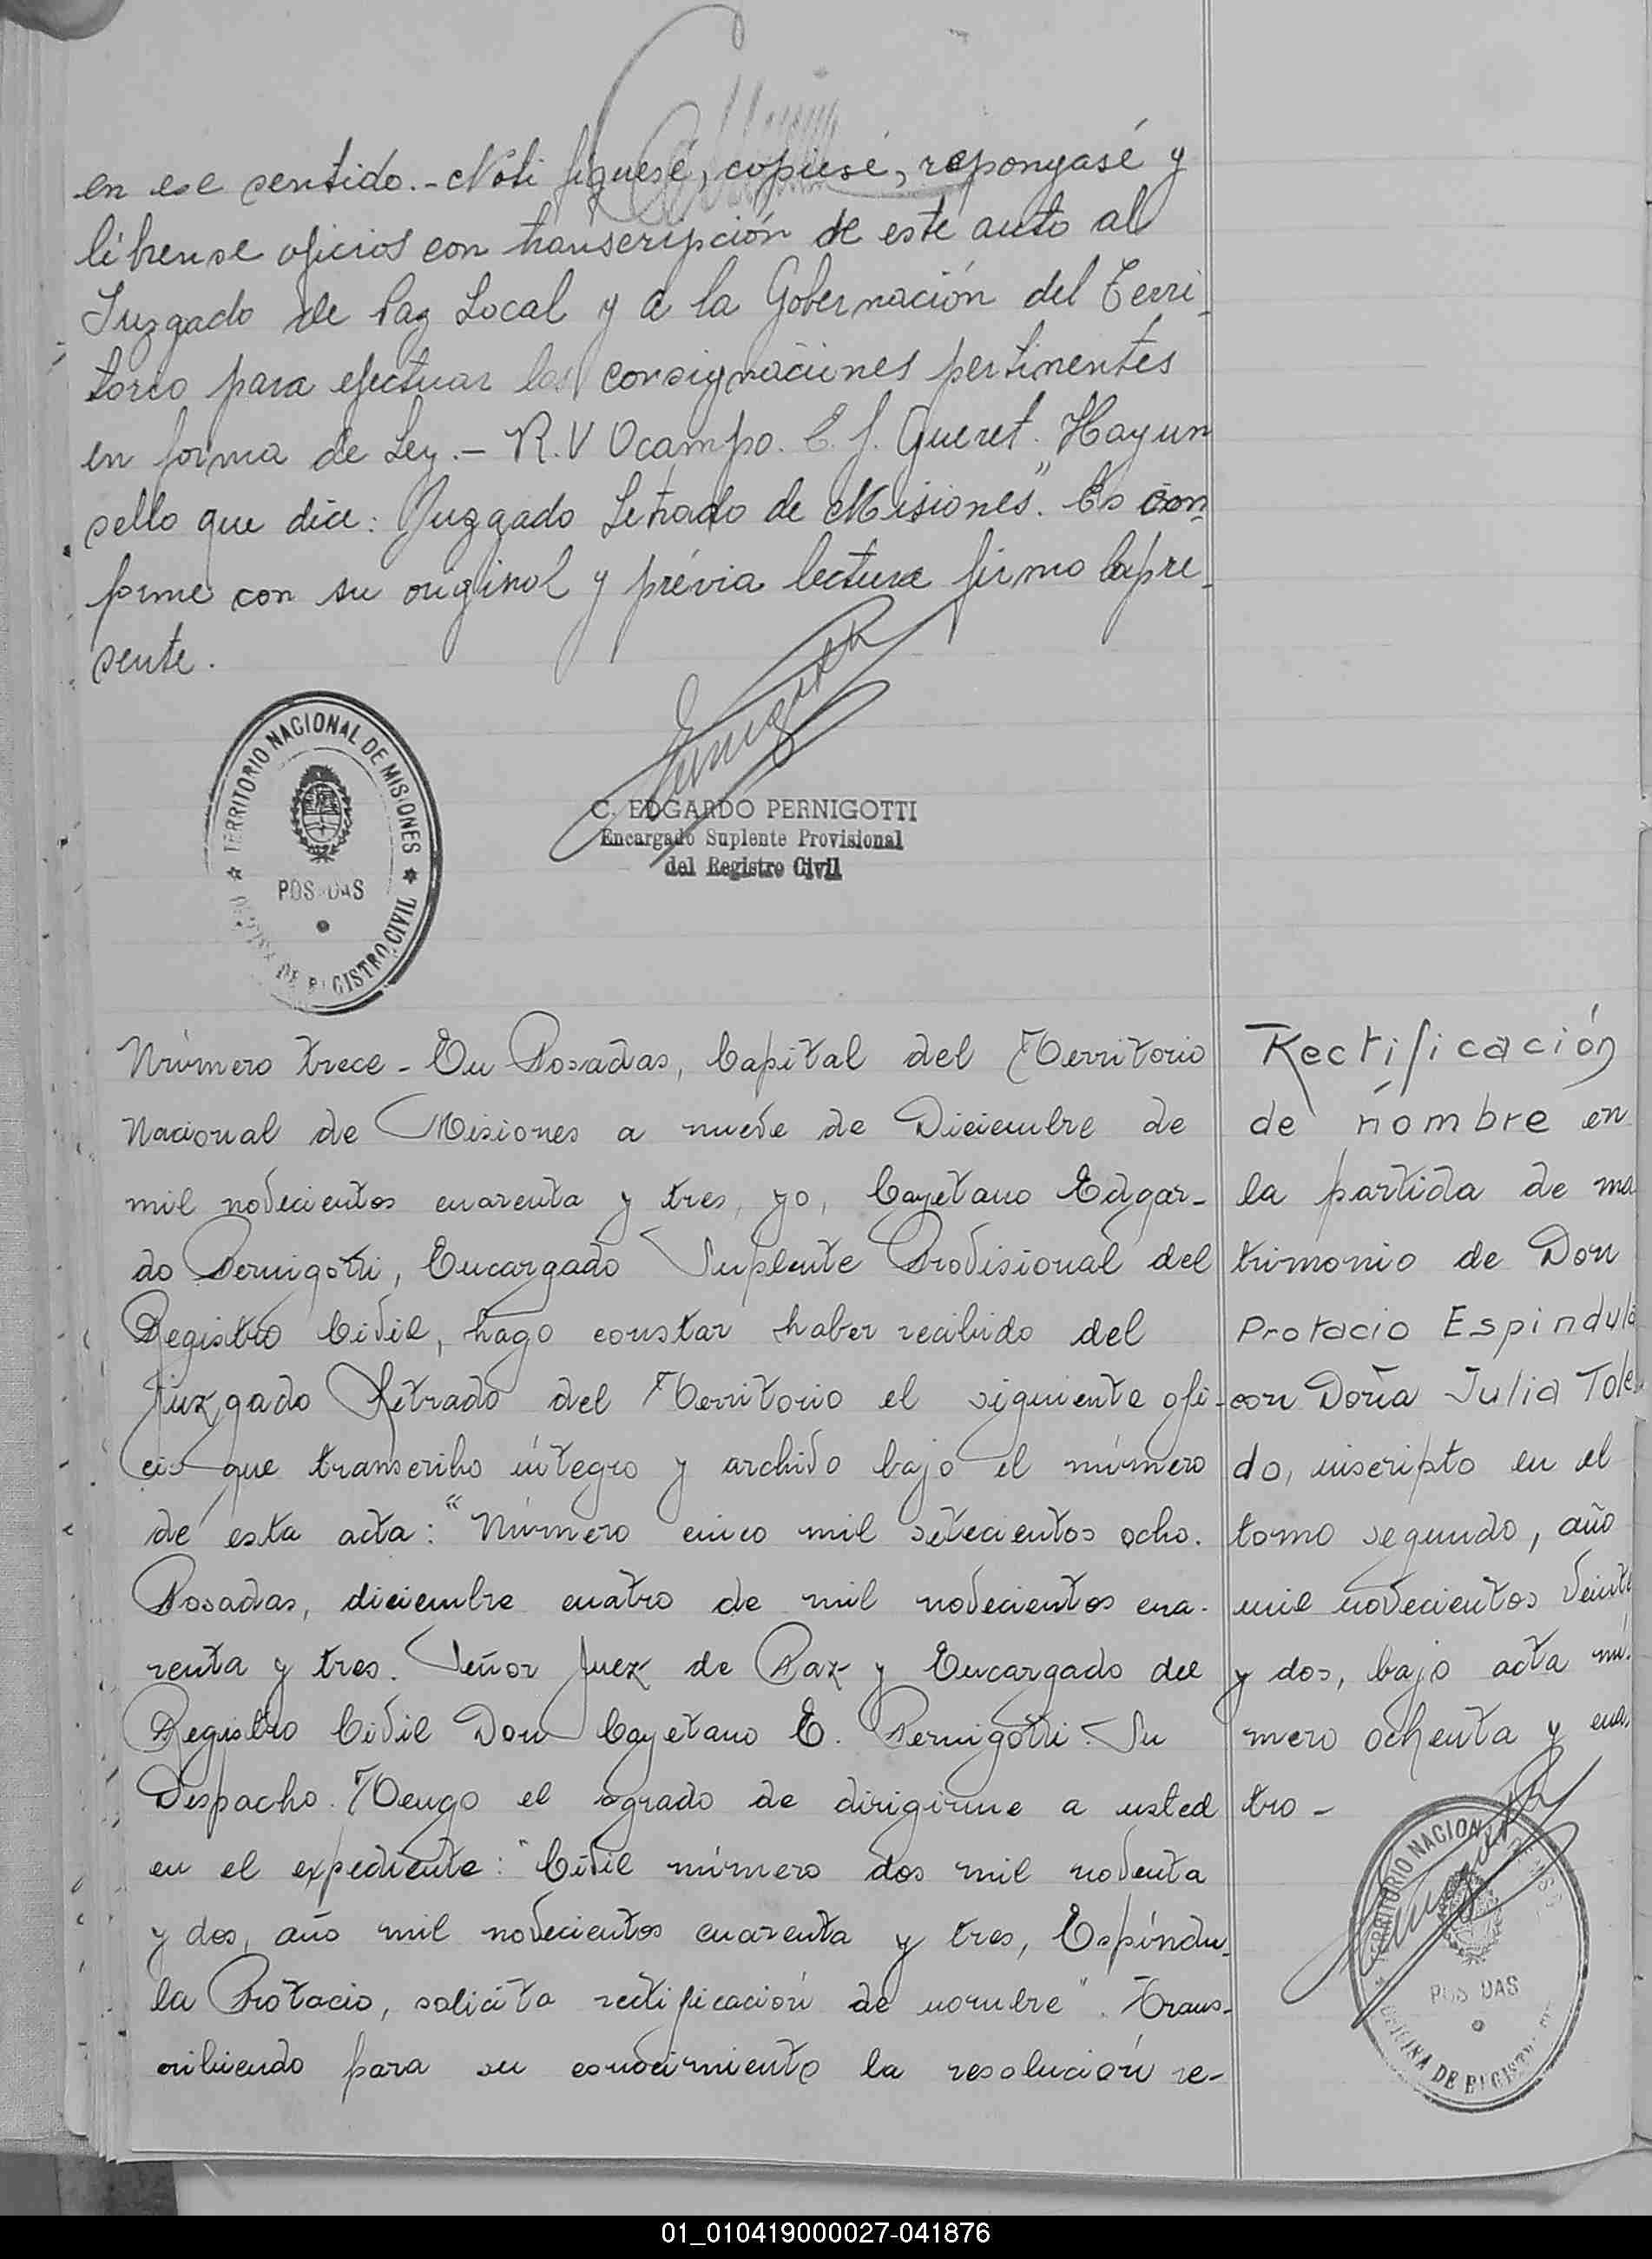 en ese sentido.- Notifiquesé, copiesé, repongasé y
líbrense oficios con transcripción de este auto al
Juzgado de Paz Local y a la Gobernación del Terri-
torio para efectuar las consignaciines pertinentes
en forma de Ley.- R. V Ocampo. E. J. Gueret. Hay un
sello que dice: Juzgado Letrado de Misiones". Es con-
forme con su original y prévia lectura firmo la pre-
sente.
TERRITORIO NACIONAL DE MISIONES
POSADAS
OFICINA DE REGISTRO CIVIL
C. EDGARDO PERNIGOTTI
Encargado Suplente Provisional
del Registro Civil
Número trece - En Posadas, Capital del Territorio
Nacional de Misiones a nueve de Diciembre de
mil novecientos cuarenta y tres, yo, Cayetano Edgar-
do Pernigotti, Encargado Suplente Provisional del
Registro Civil, hago constar haber recibido del
Juzgado Letrado del Territorio el siguiente ofi-
cio que transcribo íntegro y archivo bajo el número
de esta acta: "Número cinco mil setecientos ocho.
Posadas, diciembre cuatro de mil novecientos cua-
renta y tres. Señor Juez de Paz y Encargado del
Registro Civil Don Cayetano E. Pernigotti. Su
Despacho. Tengo el agrado de dirigirme a usted
en el expediente: "Civil número dos mil noventa
y dos, año mil novecientos cuarenta y tres, Espíndu-
la Protacio, solicita rectificación de nombre". Trans-
cribiendo para su conocimiento la resolución re-
Rectificación
de nombre en
la partida de ma
trimonio de Don
Protacio Espindula
con Doña Julia Tole
do, inscripto en el
tomo segundo, año
mil novecientos veinte
y dos, bajo acta nú-
mero ochenta y cua-
tro -
TERRITORIO NACIONAL DE MIS
POSADAS
OFICINA DE REGISTRO
01_010419000027-041876